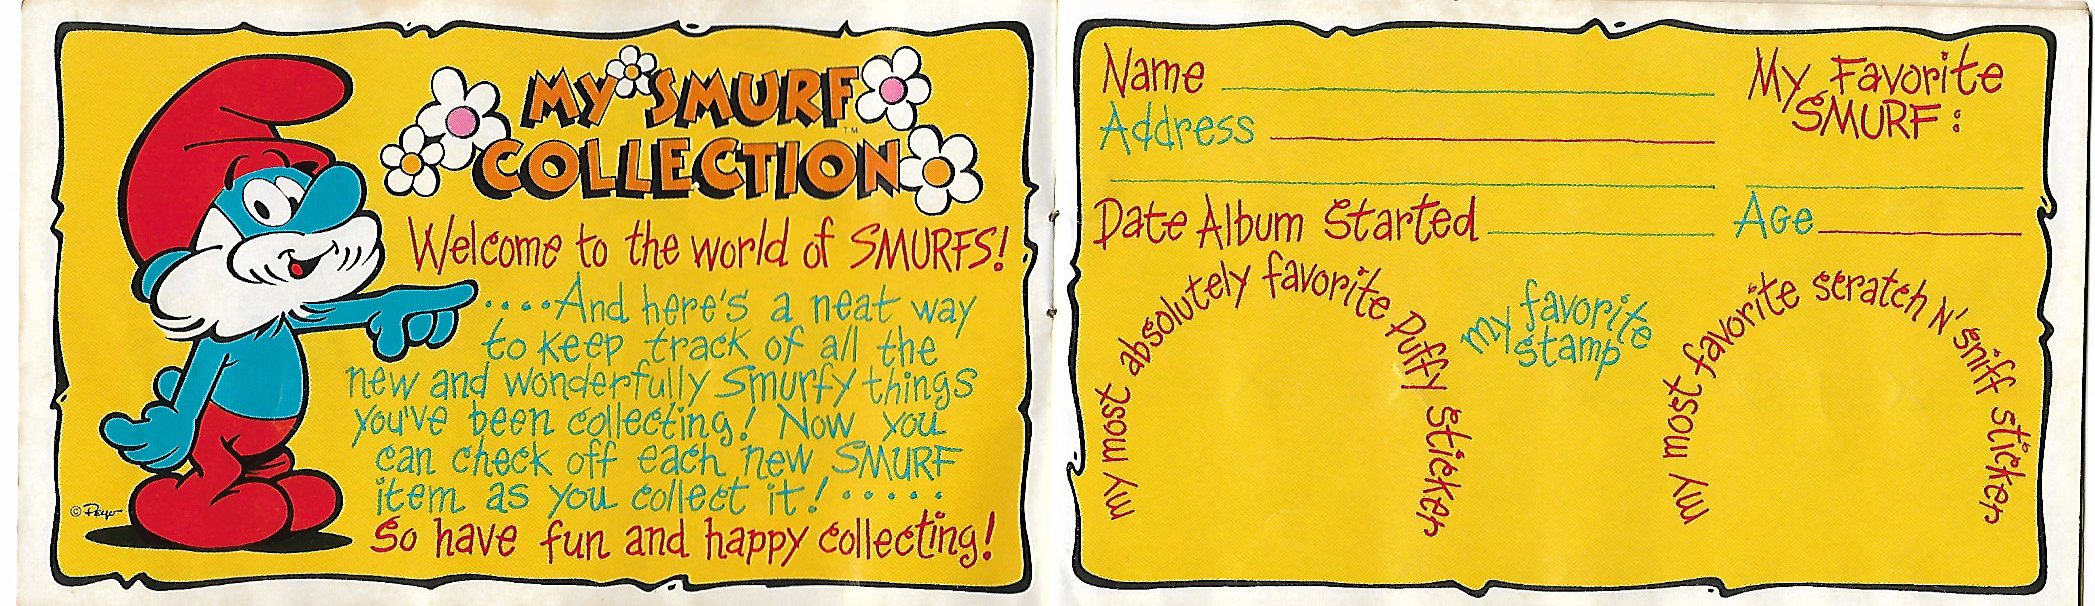 MY SMURF
™
COLLECTION
Welcome to the world of SMURFS!
....And here's a neat way
to keep track of all the
new and wonderfully Smurfy things
you've been collecting! Now you
can check off each new SMURF
item as you collect it!.....
So have fun and happy collecting!
© Peyo
Name
Address
My Favorite
SMURF:
Date Album Started
Age
my most absolutely favorite Puffy sticker
my favorite
stamp
my most favorite scratch N' sniff sticker